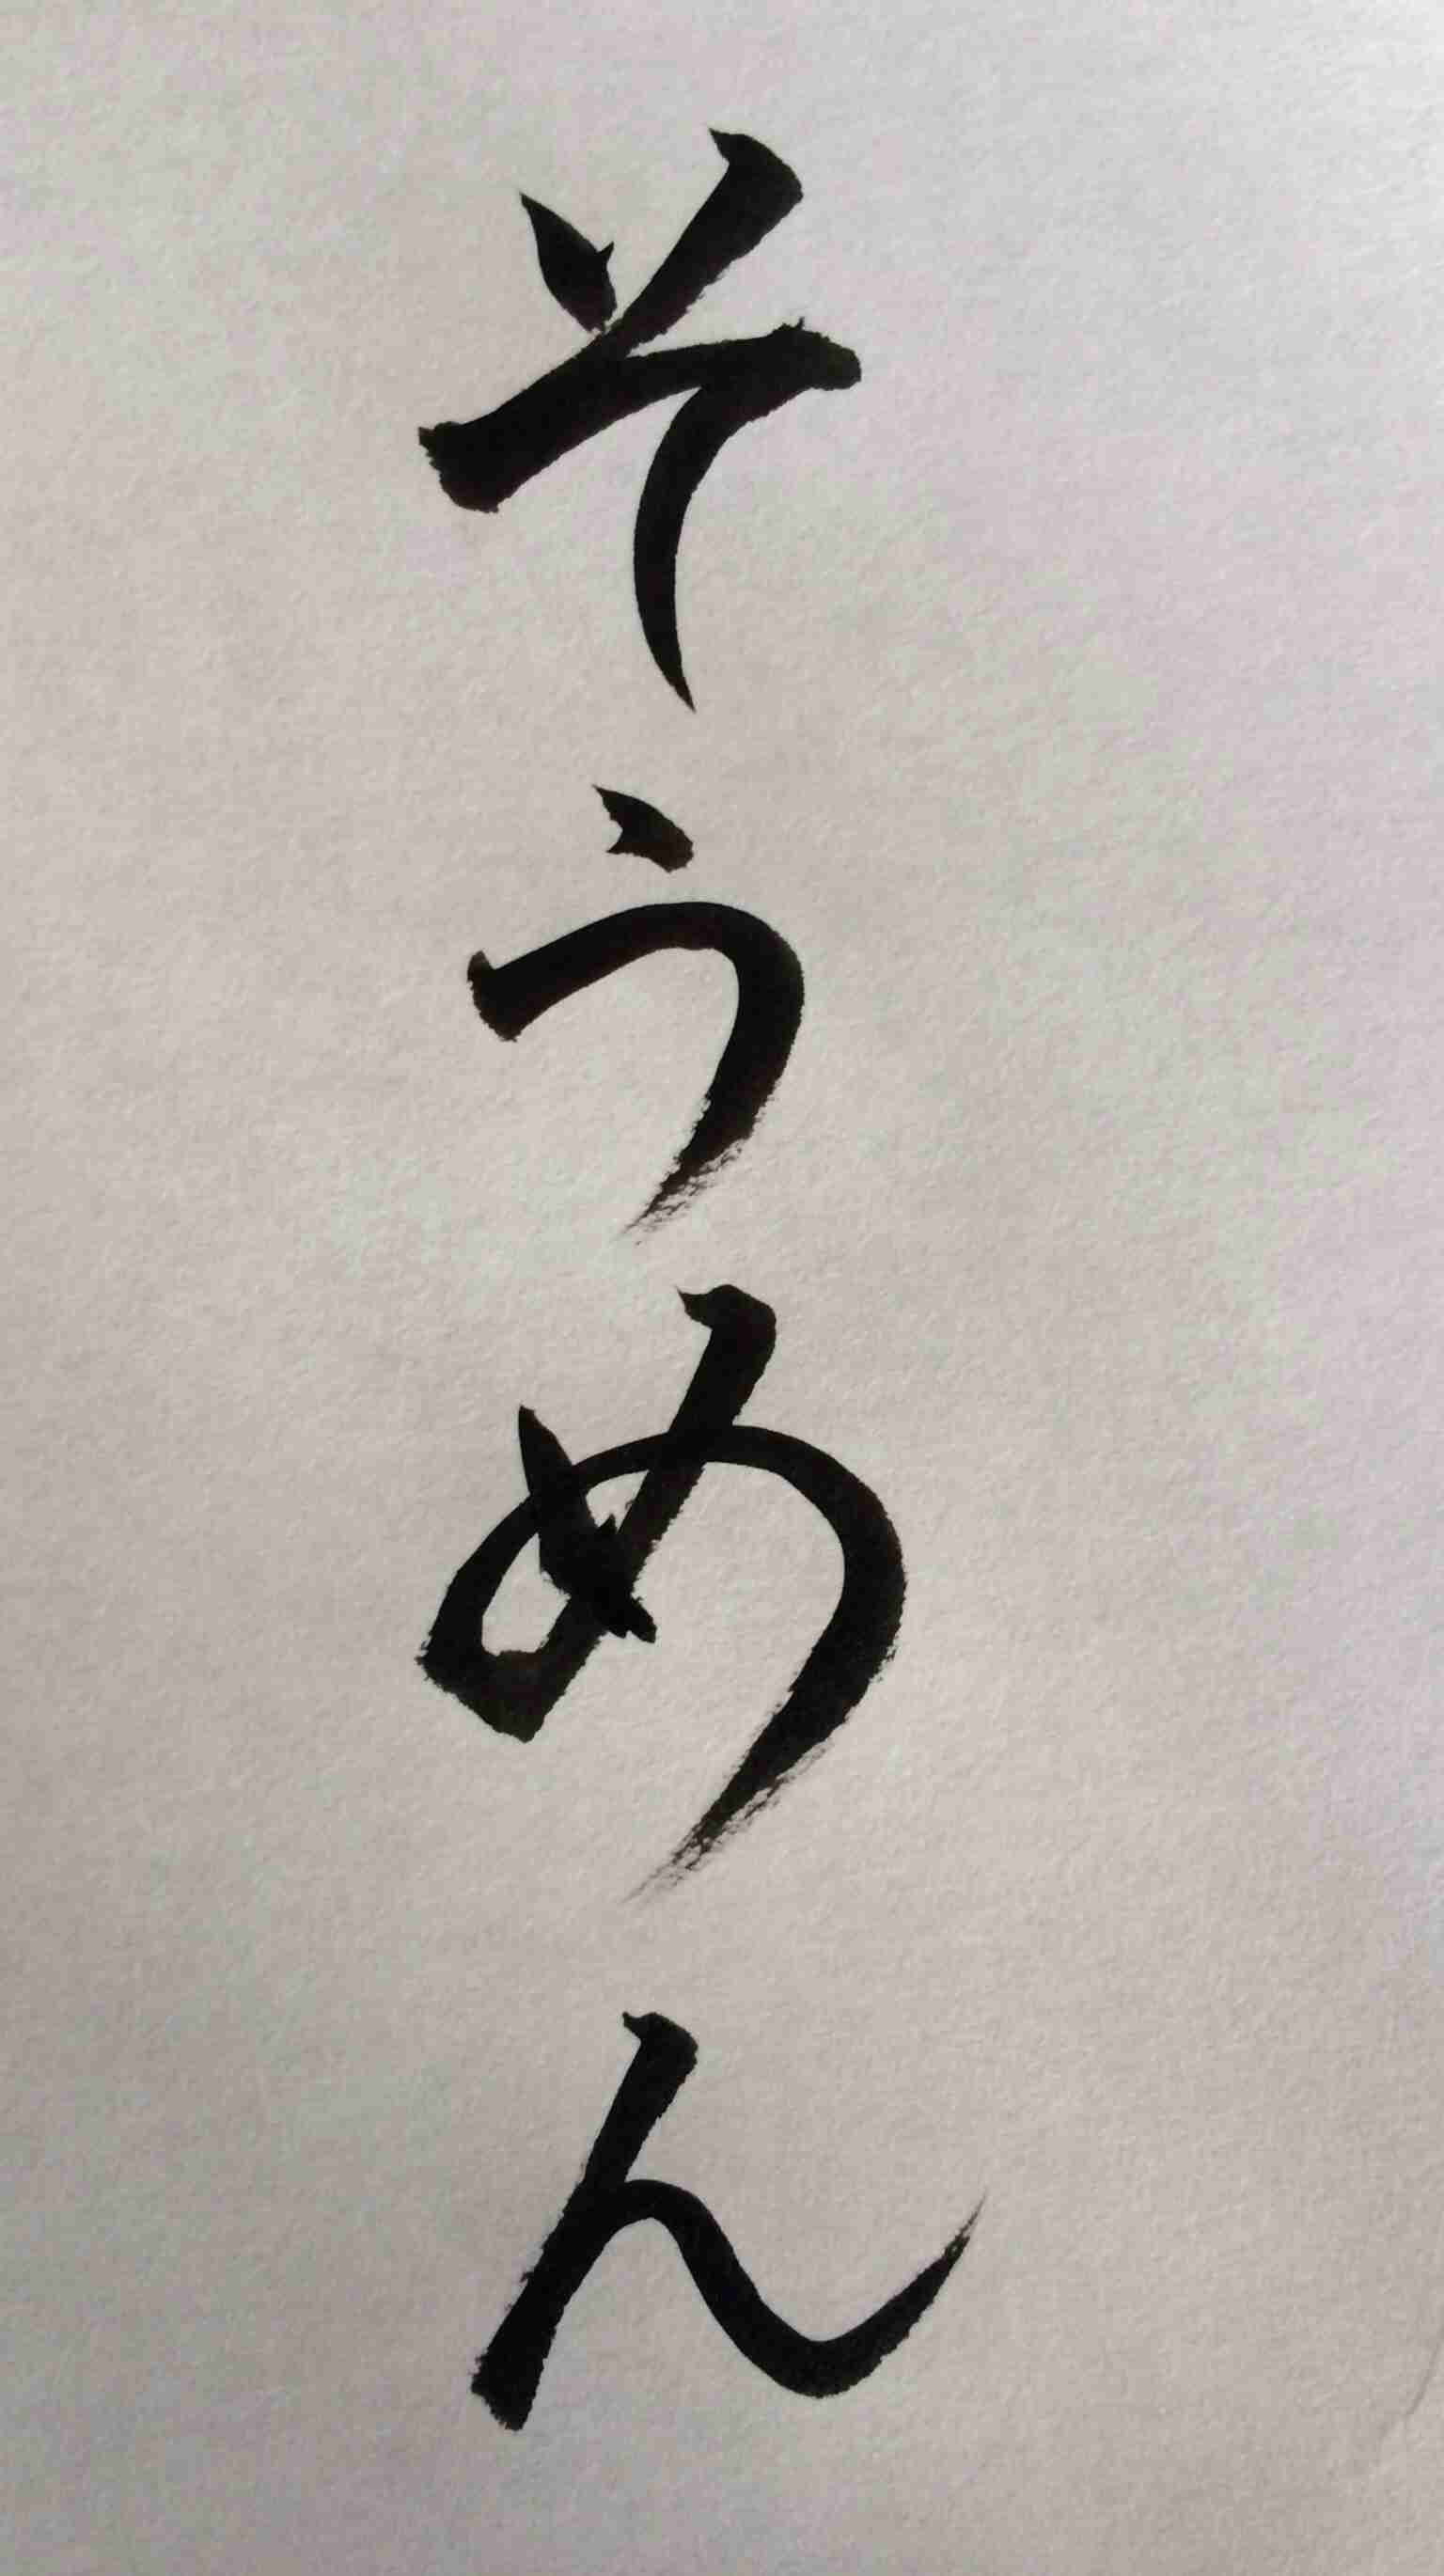 そうめん